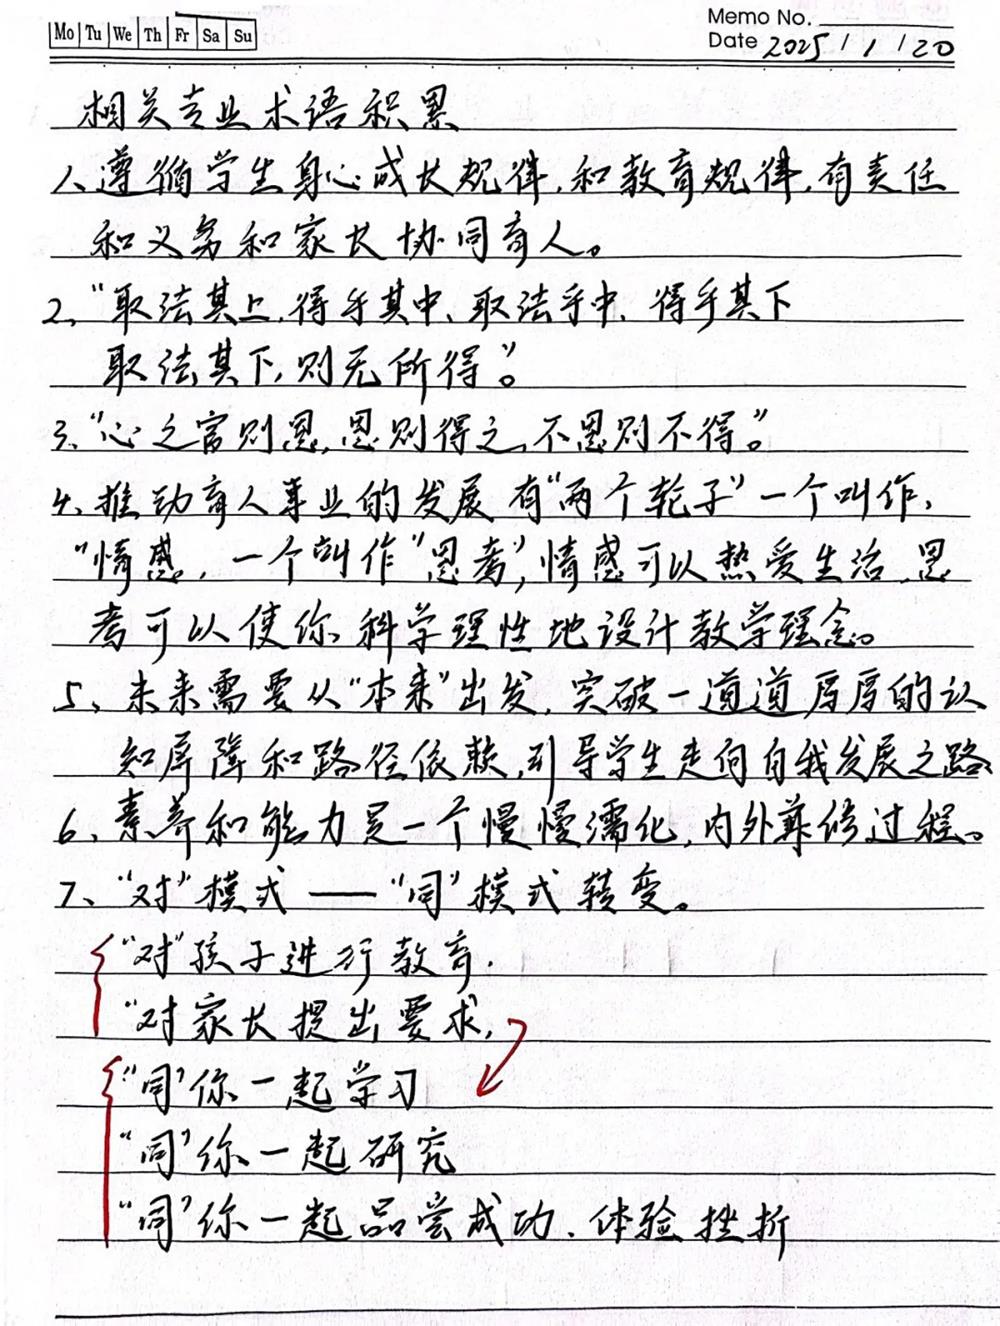 Mo Tu We Th Fr Sa Su
Memo No.
Date 2025/1/20
相关专业术语积累
1、遵循学生身心成长规律,和教育规律,有责任
和义务和家长协同育人。
2、“取法其上,得乎其中,取法乎中,得乎其下
取法其下,则无所得”。
3、“心之官则思,思则得之,不思则不得。”
4、推动育人事业的发展有“两个轮子”一个叫作,
“情感,一个叫作“思考”,情感可以热爱生活,思
考可以使你科学理性地设计教学理念。
5、未来需要从“本来”出发,突破一道道厚厚的认
知屏障和路径依赖,引导学生走向自我发展之路
6、素养和能力是一个慢慢濡化,内外兼修过程。
7、“对”模式——“同”模式转变。
“对”孩子进行教育,
“对家长提出要求,
“同”你一起学习
“同”你一起研究
“同”你一起品尝成功、体验挫折